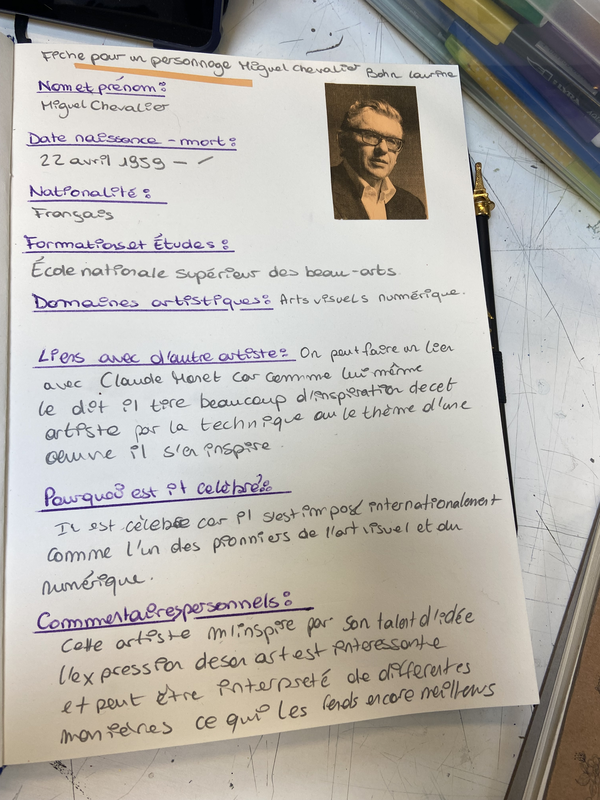 Fiche pour un personnage Miguel Chevalier Bohn Laurine
Nom et prénom :
Miguel Chevalier
Date naissance - mort :
22 avril 1959 - /
Nationalité :
Français
Formations et Études :
École nationale supérieur des beau-arts.
Domaines artistiques : Arts visuels numérique.
Liens avec d'autre artiste : On peut faire un lien
avec Claude Monet car comme lui même
le dit il tire beaucoup d'inspiration de cet
artiste par la technique ou le thème d'une
oeuvre il s'en inspire.
Pourquoi est il celèbré :
Il est célebre car il s'est imposé internationalement
comme l'un des pionniers de l'art visuel et du
numérique.
Commentaires personnels :
Cette artiste m'inspire par son talent d'idée
l'expression de son art est interessante
et peut être interpreté de differentes
manières ce qui les rends encore meilleurs